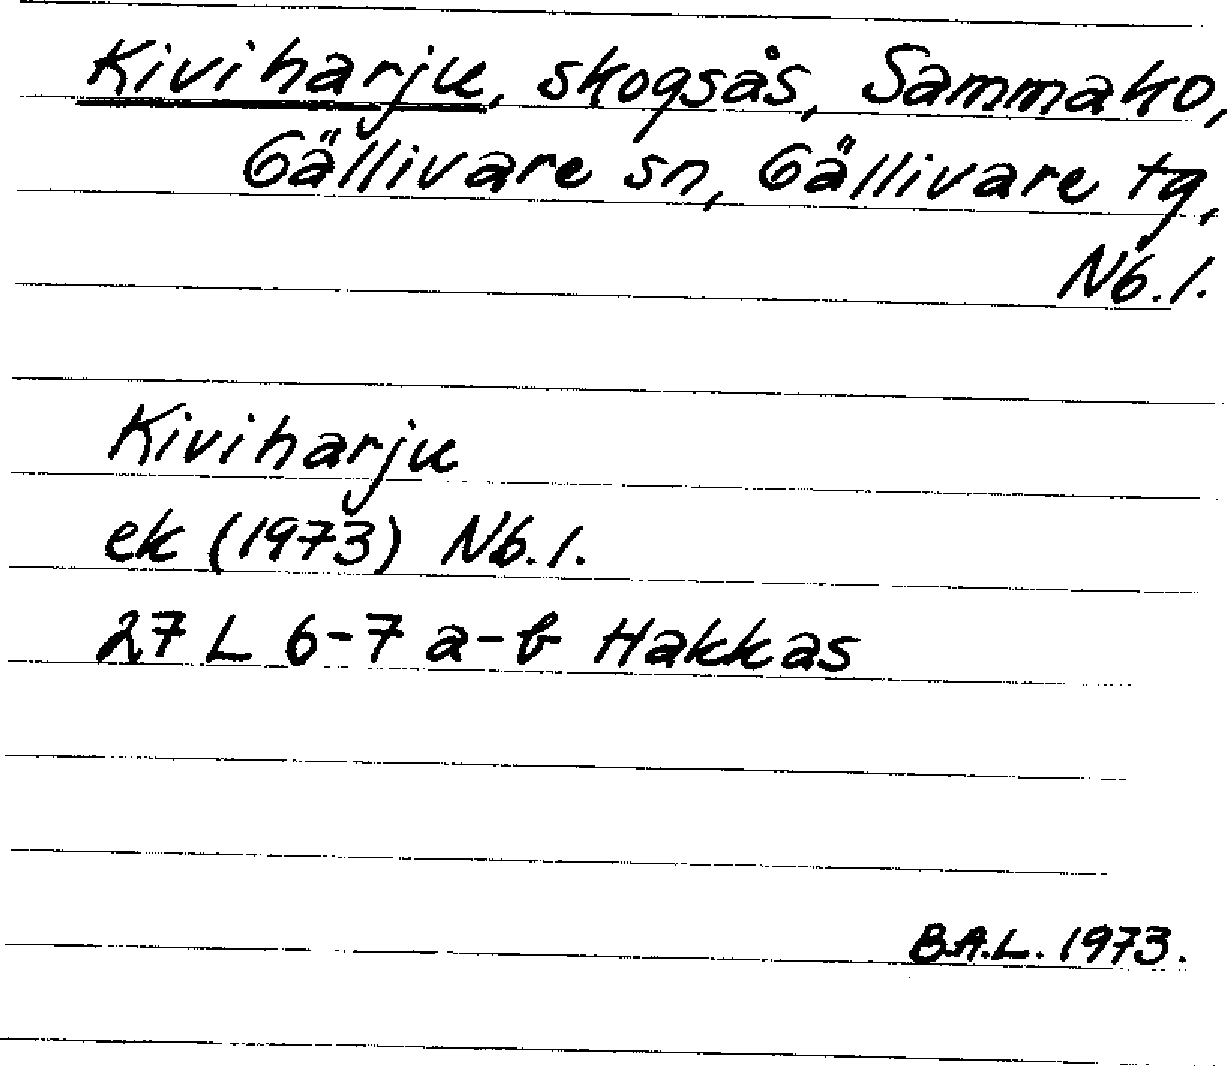 Kiviharju, skogsås, Sammako,
Gällivare sn, Gällivare tg,
Nb.l.
Kiviharju
ek (1973) Nb.l.
27 L 6-7 a-b Hakkas
B.A.L. 1973.